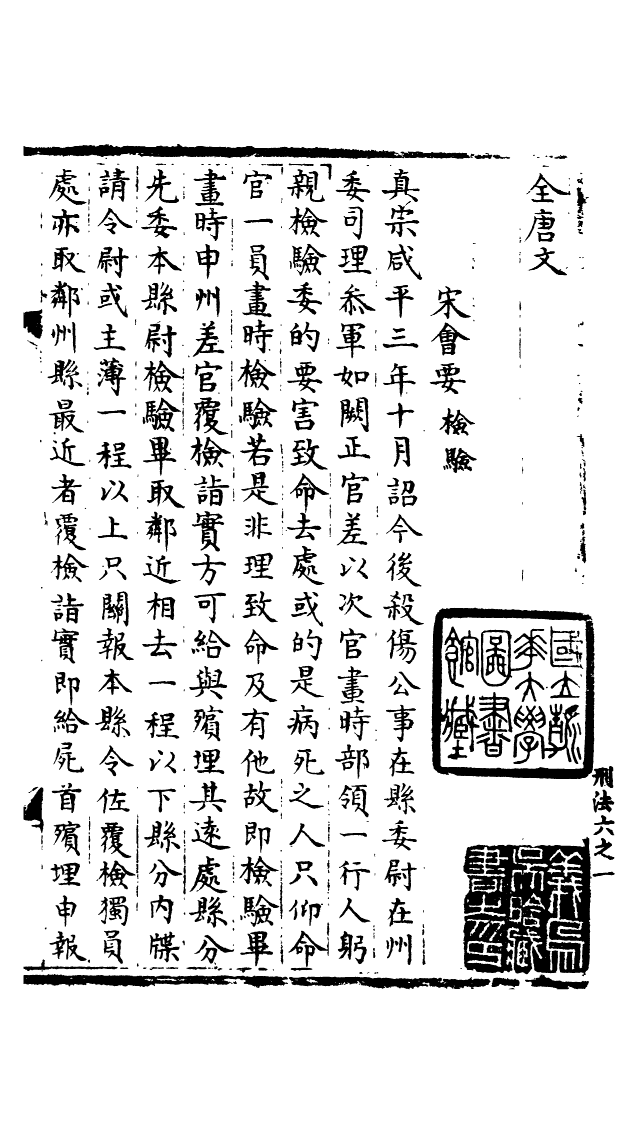 刑法六之一
全唐文
宋會要 檢驗
真宗咸平三年十月詔今後殺傷公事在縣委尉在州
委司理叅軍如闕正官差以次官畫時部領一行人躬
親檢驗委的要害致命去處或的是病死之人只仰命
官一員畫時檢驗若是非理致命及有他故即檢驗畢
畫時申州差官覆檢詣實方可給與殯埋其遠處縣分
先委本縣尉檢驗畢取鄰近相去一程以下縣分內牒
請令尉或主薄一程以上只關報本縣令佐覆檢獨員
處亦取鄰州縣最近者覆檢詣實即給屍首殯埋申報
國立清華大學圖書館藏
義烏吳晗藏書之印